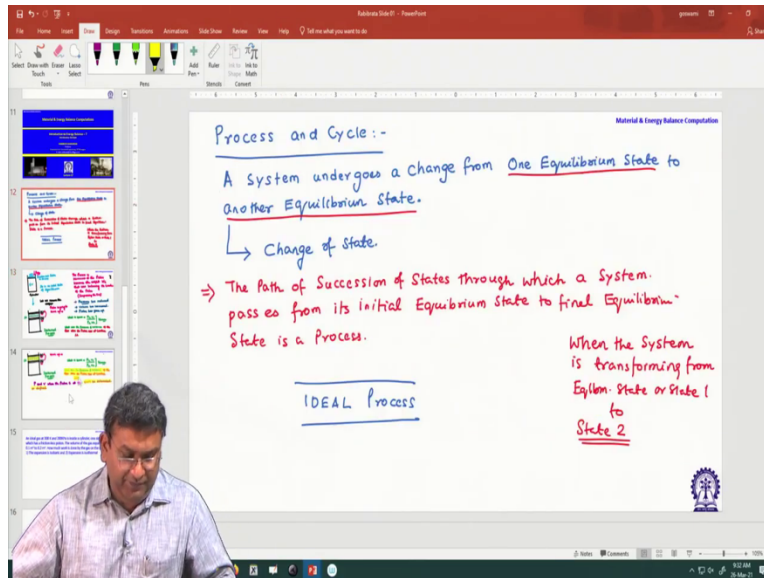 Rabibrata Slide 01 - PowerPoint
goswami
File Home Insert Draw Design Transitions Animations Slide Show Review View Help Tell me what you want to do
Select Draw with Touch Eraser Lasso Select
Add Pen
Ruler
Ink to Shape
Ink to Math
Tools
Pens
Stencils
Convert
11
12
13
14
15
16
Material & Energy Balance Computation
Process and Cycle:-
A System undergoes a change from One Equilibrium State to
another Equilibrium State.
Change of State.
⇒ The Path of Succession of States through which a System.
passes from its initial Equibrium State to final Equilibrium
State is a Process.
IDEAL Process
When the System
is transforming from
Eqlbm. State or State 1
to
State 2
Notes Comments
9:32 AM
26-Mar-21